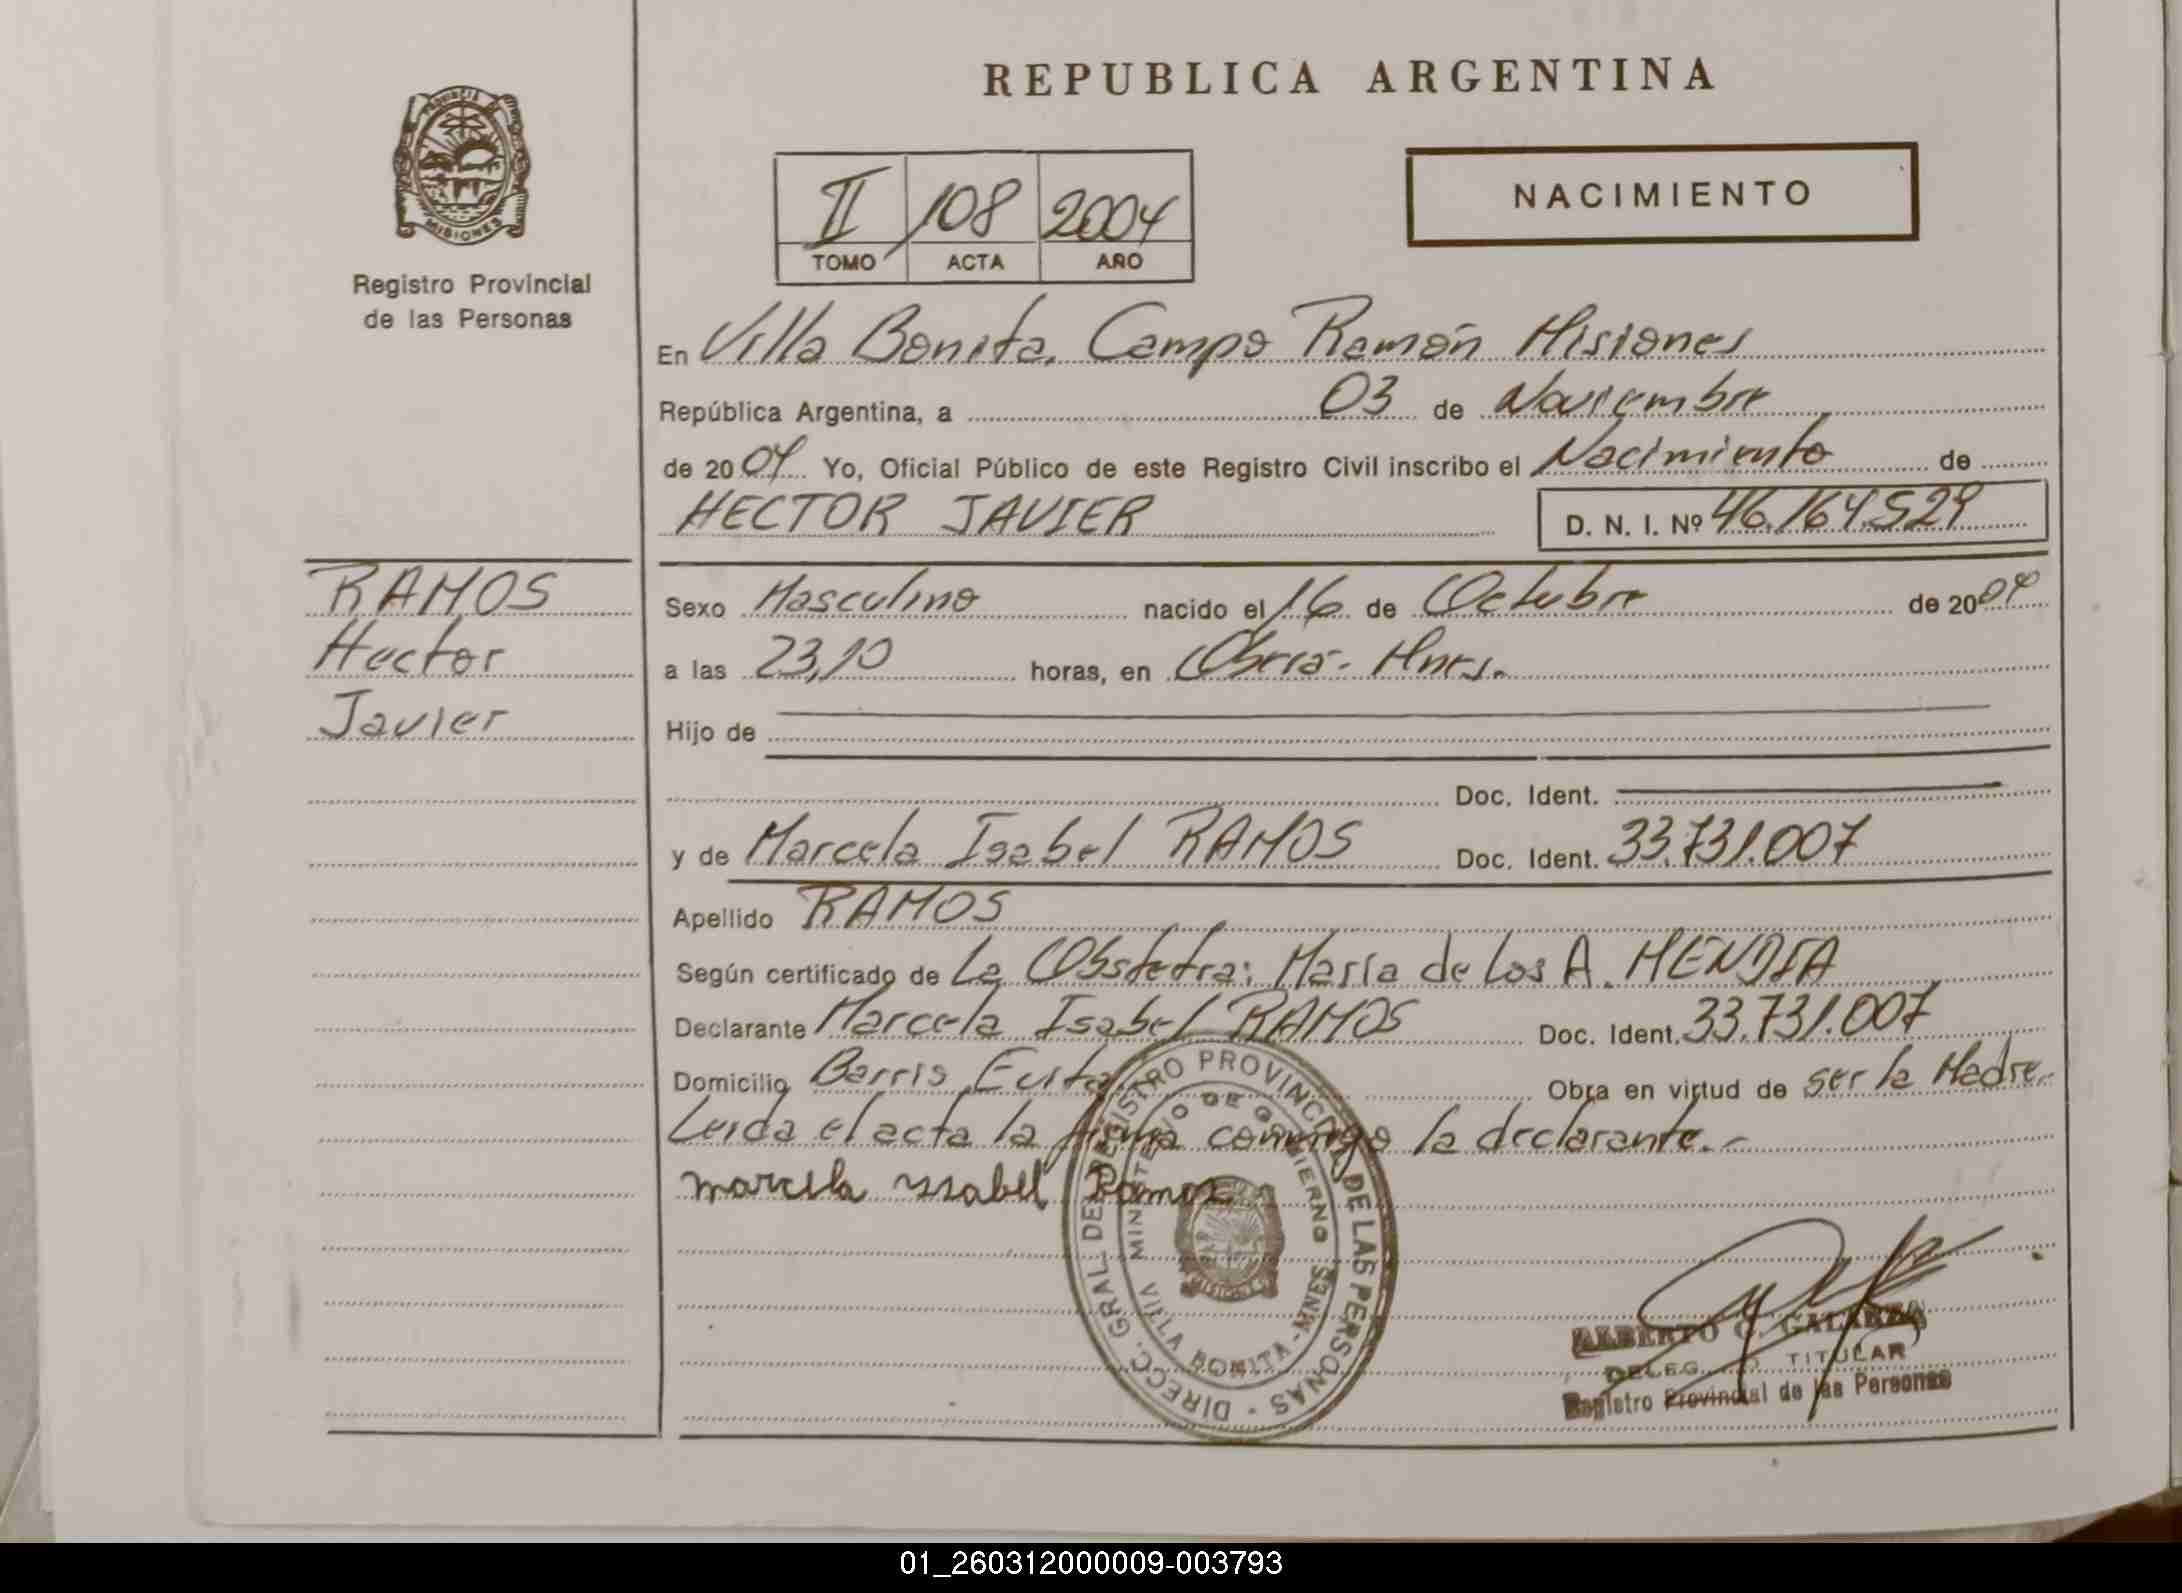 REPUBLICA ARGENTINA
PROVINCIA DE MISIONES
Registro Provincial
de las Personas
II 108 2004
TOMO ACTA AÑO
NACIMIENTO
En Villa Bonita. Campo Ramón Misiones
República Argentina, a 03 de Noviembre
de 2004 Yo, Oficial Público de este Registro Civil inscribo el Nacimiento de
HECTOR JAVIER D. N. I. Nº 46.164.529
RAMOS
Hector
Javier
Sexo Masculino nacido el 16 de Octubre de 2004
a las 23,10 horas, en Oberá - Mnes.
Hijo de
Doc. Ident.
y de Marcela Isabel RAMOS Doc. Ident. 33.731.007
Apellido RAMOS
Según certificado de La Obstetra: María de los A. MENDIA
Declarante Marcela Isabel RAMOS Doc. Ident. 33.731.007
Domicilio Barrio Evita Obra en virtud de ser la Madre.
Leida el acta la firma conmigo la declarante.-
marcela yssabel Ramos
DIRECC. GRAL. DE REGISTRO PROVINCIAL DE LAS PERSONAS -
MINISTERIO DE GOBIERNO
VILLA BONITA - MNES
MISIONES
ALBERTO C. GALARZA
TITULAR
Registro Provincial de las Personas
01_260312000009-003793